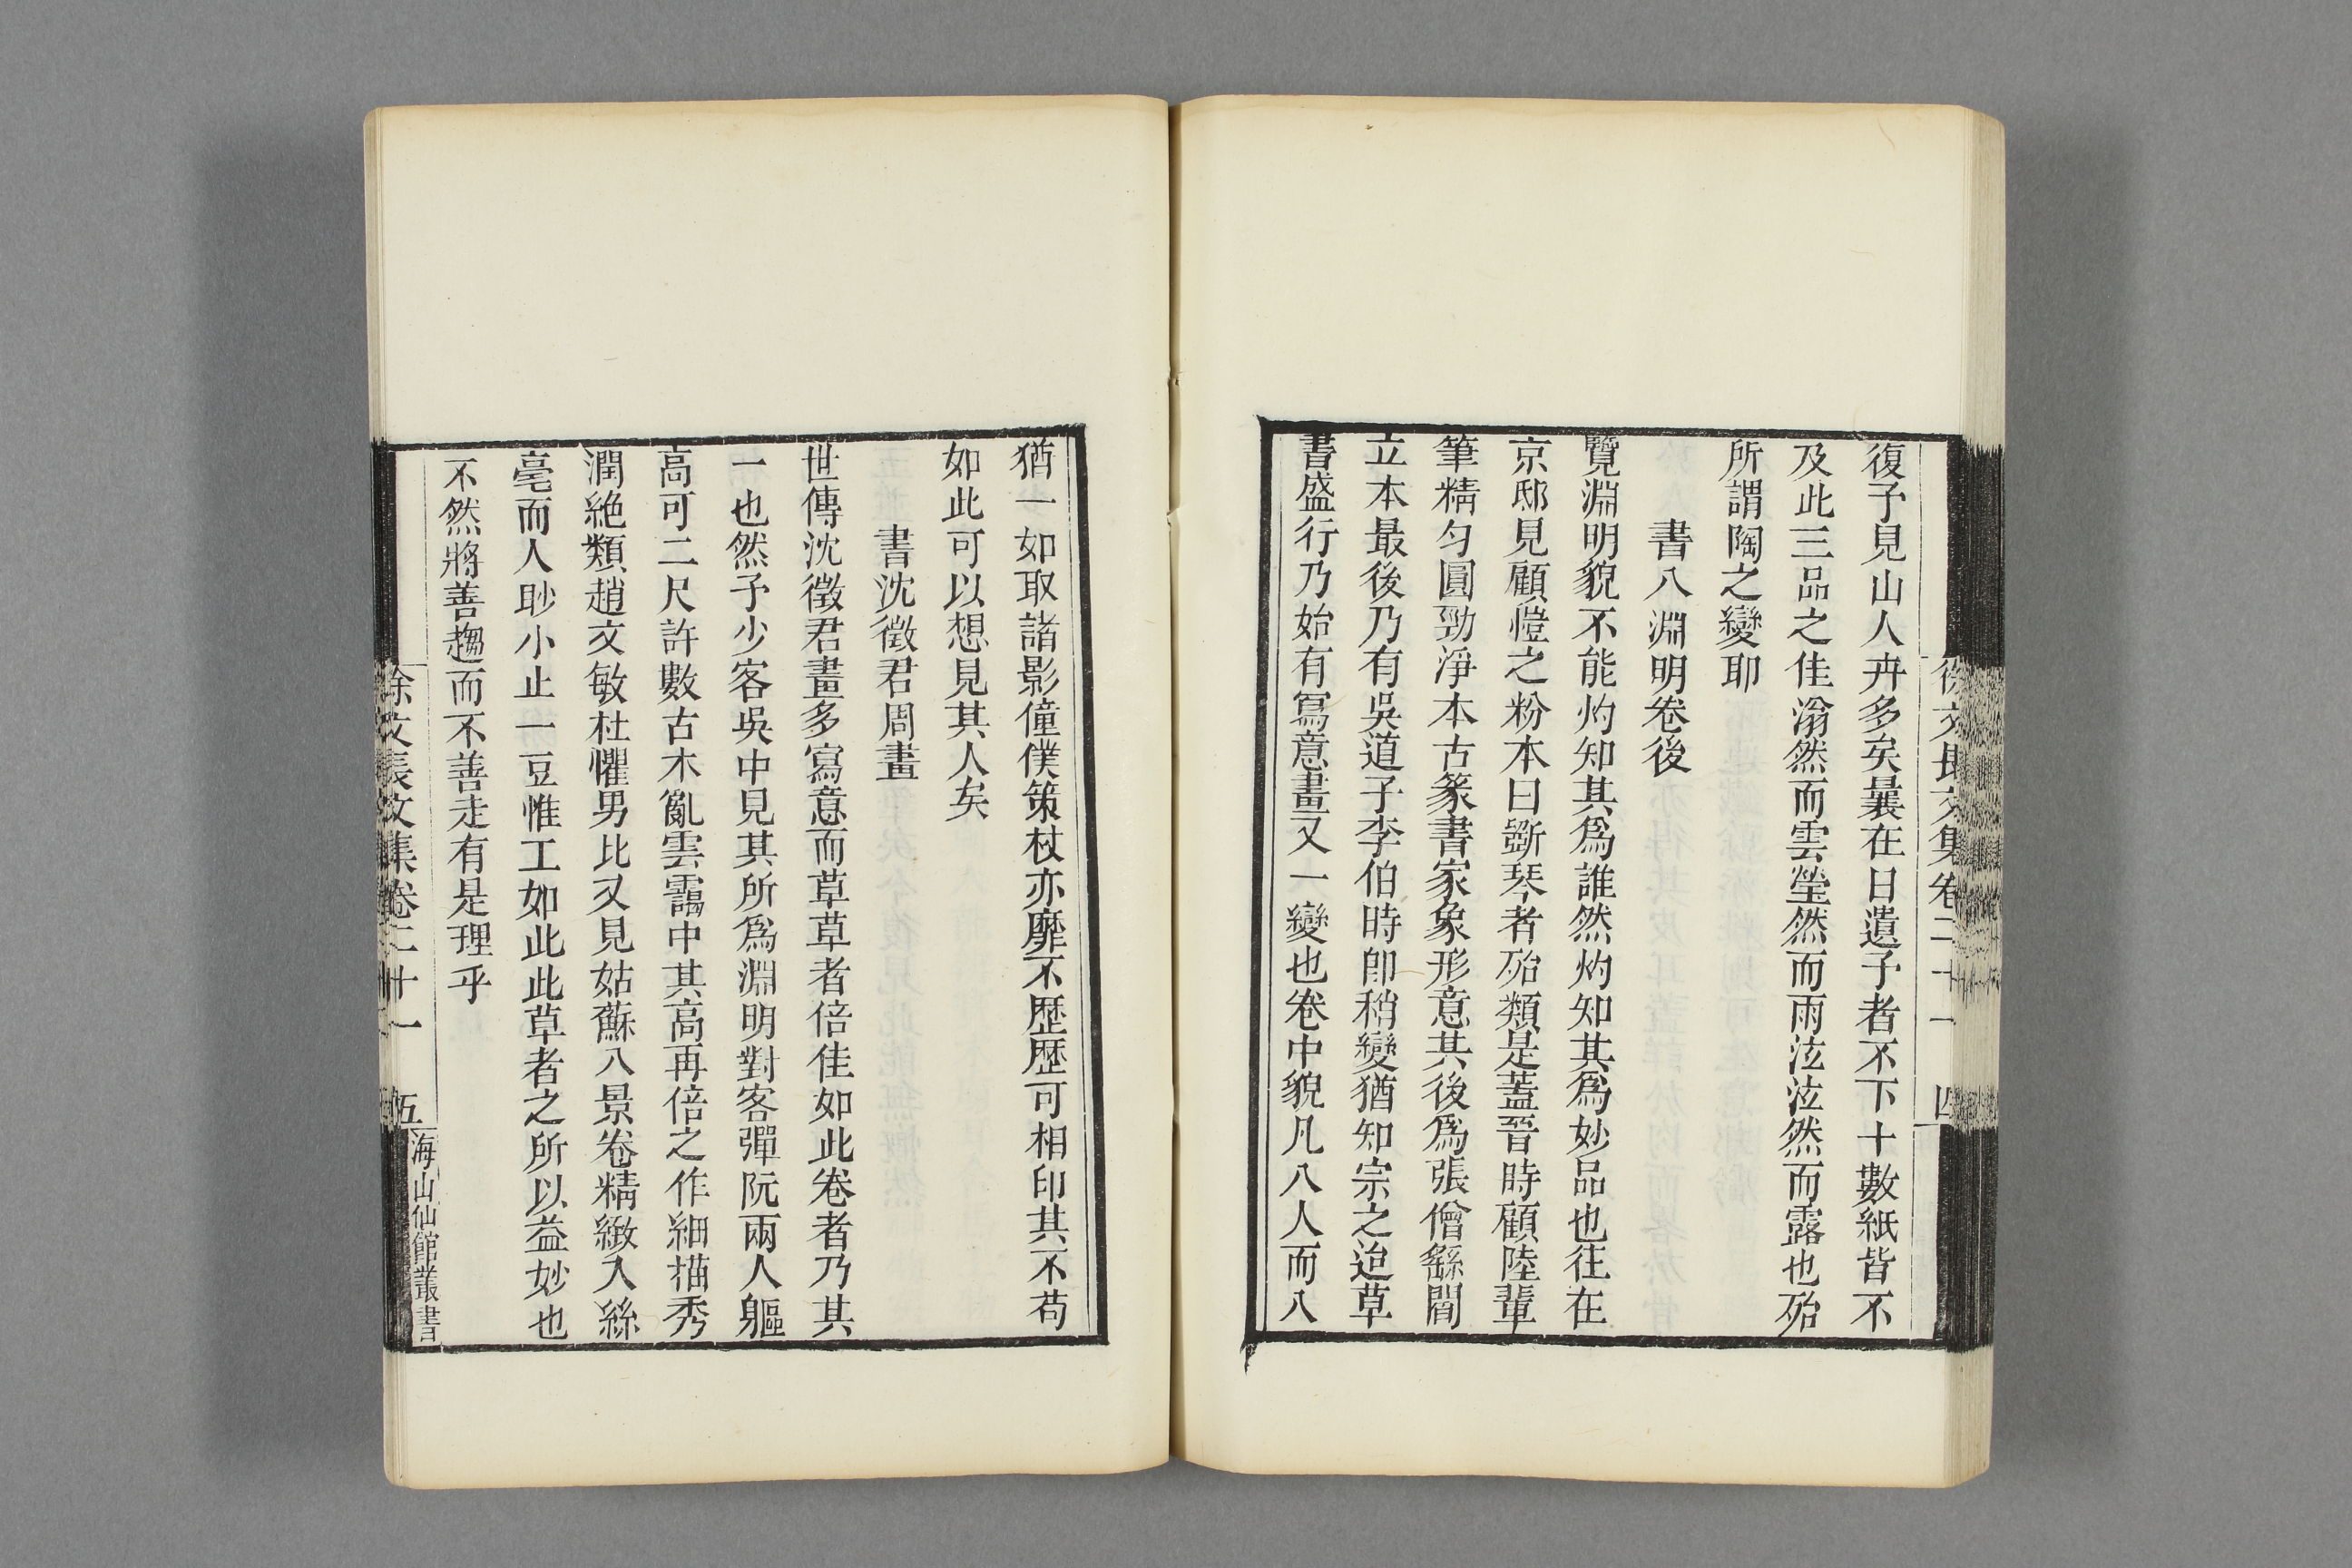 徐文長文集卷二十一 四
復予見山人卉多矣曩在日遺予者不下十數紙皆不
及此三品之佳滃然而雲瑩然而雨泫泫然而露也殆
所謂陶之變耶
書八淵明卷後
覽淵明貌不能灼知其爲誰然灼知其爲妙品也往在
京邸見顧愷之粉本曰斵琴者殆類是蓋晉時顧陸輩
筆精勻圓勁淨本古篆書家象形意其後爲張僧繇閻
立本最後乃有吳道子李伯時卽稍變猶知宗之迨草
書盛行乃始有寫意畫又一變也卷中貌凡八人而八
猶一如取諸影僮僕策杖亦靡不歷歷可相印其不苟
如此可以想見其人矣
書沈徵君周畫
世傳沈徵君畫多寫意而草草者倍佳如此卷者乃其
一也然予少客吳中見其所爲淵明對客彈阮兩人軀
高可二尺許數古木亂雲靄中其高再倍之作細描秀
潤絶類趙文敏杜懼男比又見姑蘇八景卷精緻入絲
毫而人眇小止一豆惟工如此此草者之所以益妙也
不然將善趨而不善走有是理乎
徐文長文集卷二十一 五
海山仙館叢書